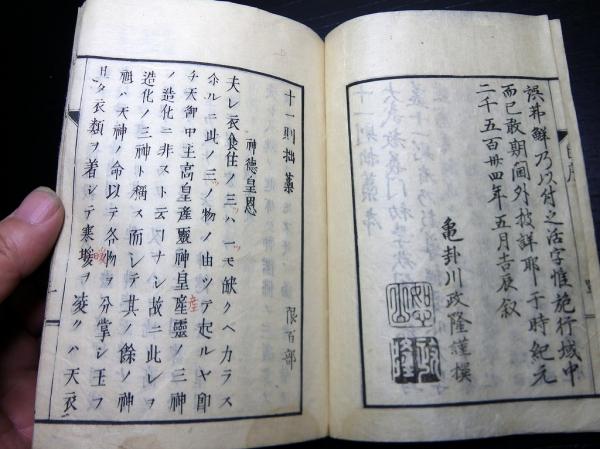 誤茀鮮乃以付之活字惟施行域中
而已敢期閫外披詳耶于時紀元
二千五百卅四年五月吉辰叙
亀卦川政隆謹撰
十一則拙藁
限百部
神徳皇恩
夫レ衣食住ノ三ハ一モ缺クヘカラス
余ルニ此ノ三ツ物ノ由ツテ起ルヤ即
チ天御中主高皇産靈神皇産靈ノ三神
産
ノ造化ニ非スト云フナシ故ニ此レヲ
造化ノ三神ト稱ス而シテ其ノ餘ノ神
祖ハ天神ノ命以テ各物ヲ分掌シ玉フ
且夕衣類ヲ着シテ寒煖ヲ凌クハ天衣
暖